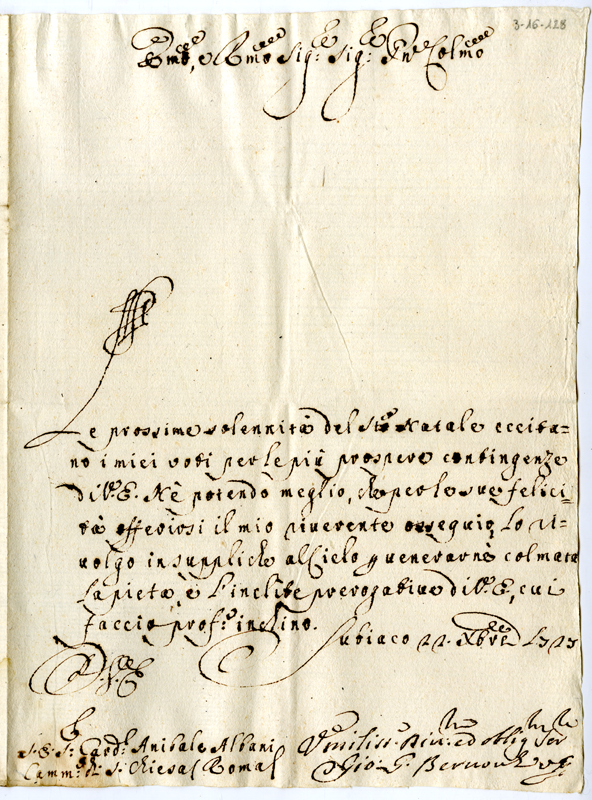 3-16-128
Emo, e Rmo Sig: Sig: Pne Colmo
Le prossime solennità del Sto Natale eccita=
no i miei voti per le più prospere contingenze
di V. E. Nè potendo meglio, che per le sue felici
tà offeriosi il mio riverente ossequio, lo ri=
volgo in suppliche al Cielo p venerarne colmata
la pietà, e l'inclite prerogative di V. E, cui
faccio profo inchino.
Subiaco 22. Xbre 1723
D. V. E.
S: Card. Anibale Albani
Camm. di S: Chiesa Roma
Umiliss Div: ed oblig Ser
Gio: G.